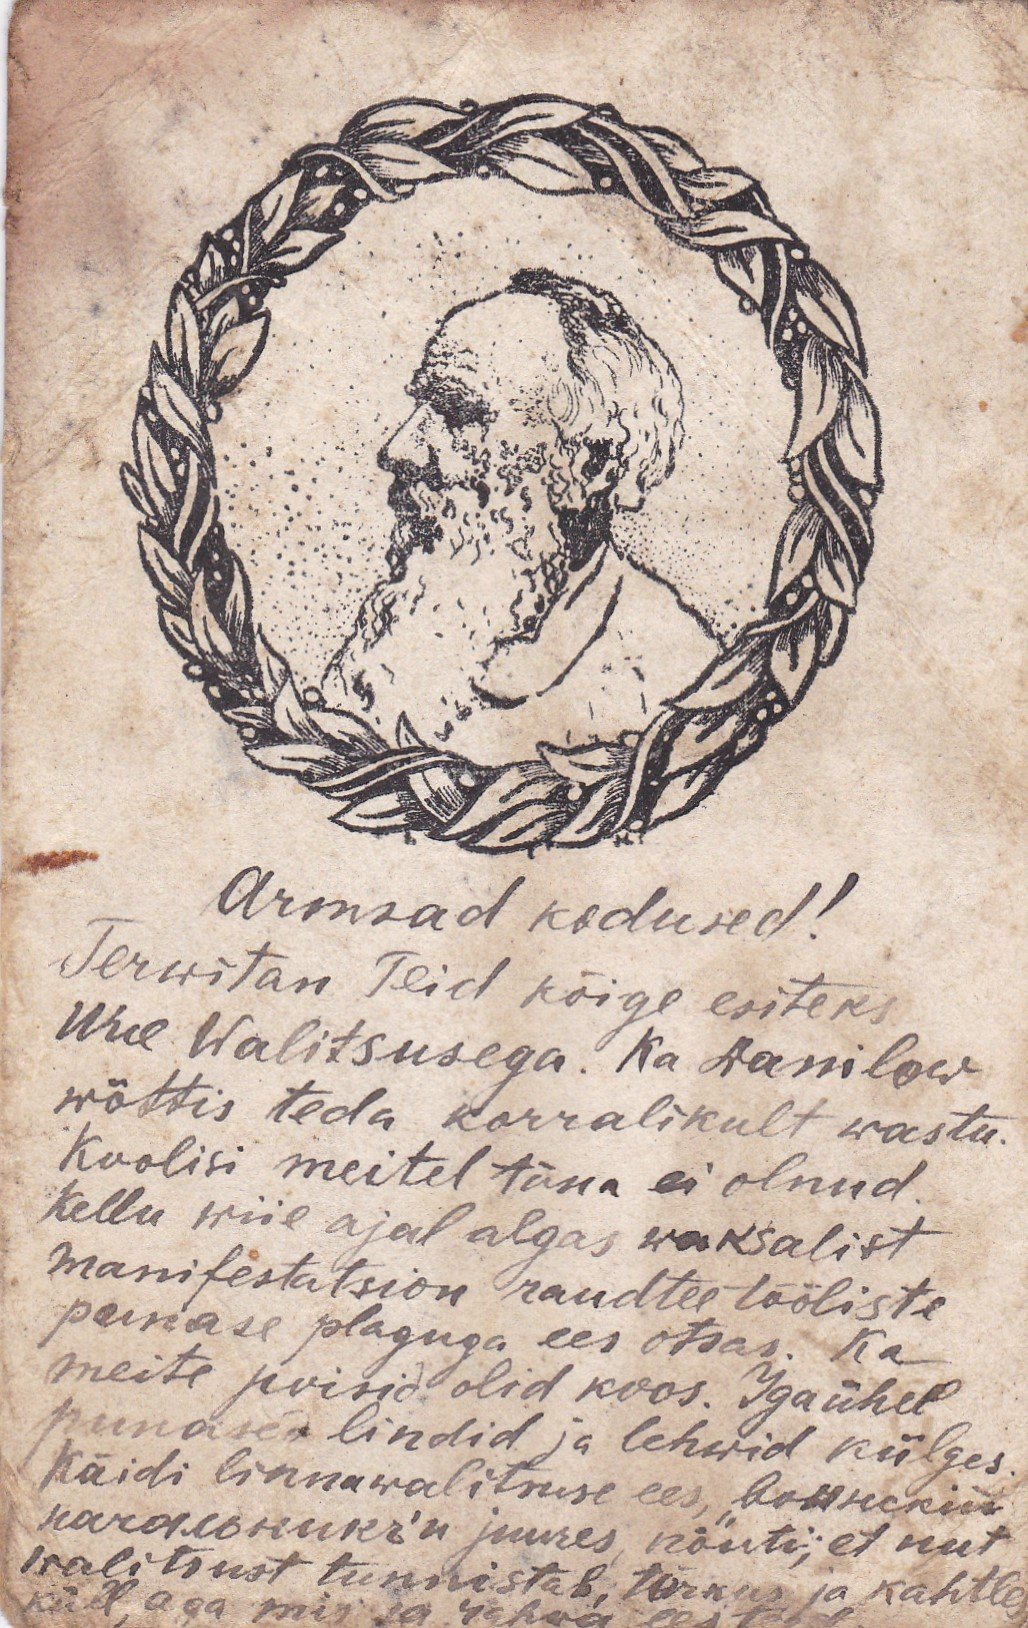 Armsad kodused!
Terwitan Teid kõige esiteks
Uue Walitsusega. Ka Danilow
wõttis teda korralikult wastu.
Koolisi meitel täna ei olnud.
Kella wiie ajal algas waksalist
manifestatsion raudtee tööliste
punase plaguga ees otsas. Ka
meite poisid olid koos. Igaühel
punased lindid ja lehwid külges.
Käidi linnawalitsuse ees, „воинский
начальник'u juures, nõuti, et uut
walitsust tunnistab, tõrkus ja kahtles
küll, aga mis sa rahwa ees teed.